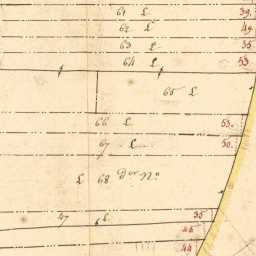 61 L 39.
62 L 49.
63 L 35.
64 L 53
65 L
66 L 53.
67 L 50.
L 68
47 35
46
44